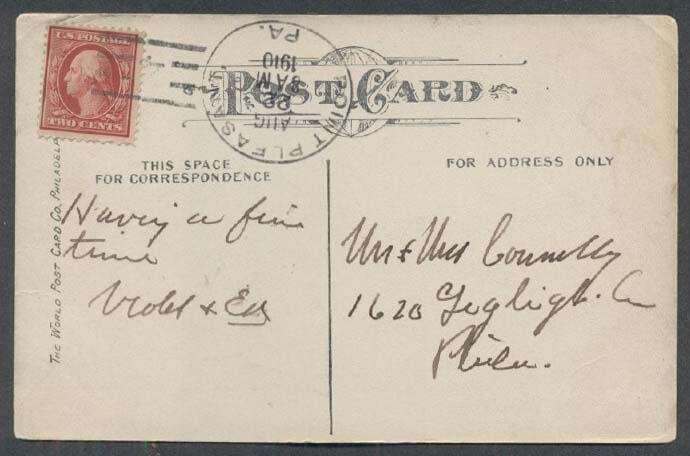 U.S. POSTAGE
TWO CENTS
POINT PLEASANT
PA.
AUG
22
8 AM
1910
POST CARD
THIS SPACE
FOR CORRESPONDENCE
FOR ADDRESS ONLY
THE WORLD POST CARD CO. PHILADELP
Having a fine
time
Violet & Ed
Mr & Mrs Connelly
1620
Phila.